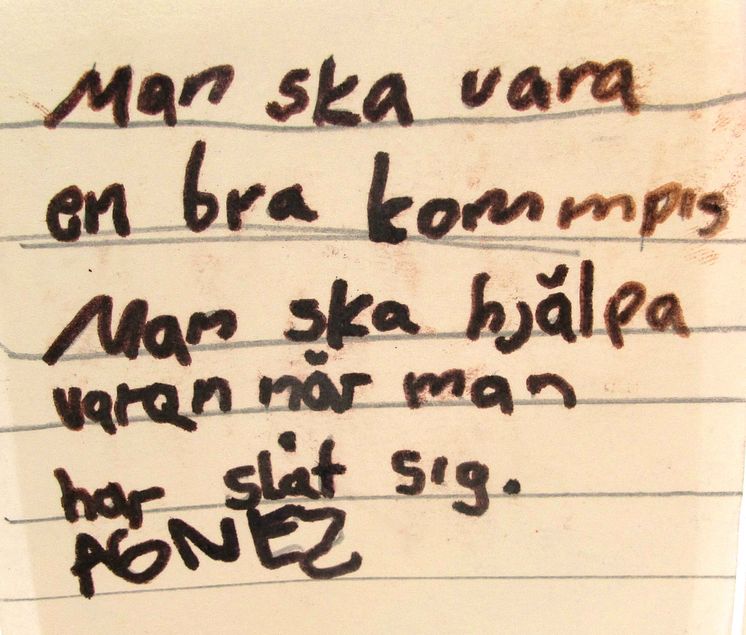 Man ska vara
en bra kommmpis
Man ska hjälpa
varan når man
har slåt sig.
AGNEZ